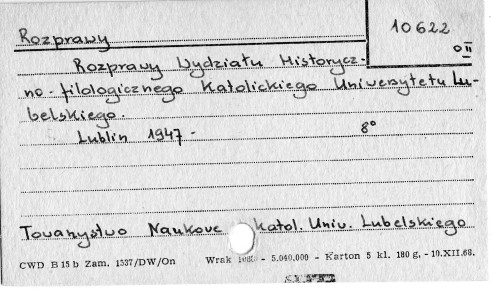 10622
OII
Rozprawy
Rozprawy Wydziału Historycz-
no-filologicznego Katolickiego Uniwersytetu Lu-
belskiego.
Lublin 1947- 8°
Towarzystwo Naukowe Katol. Univ. Lubelskiego
CWD B 15 b Zam. 1537/DW/On Wrak - 5.040.000 - Karton 5 kl. 180 g, - 10.XII.68.